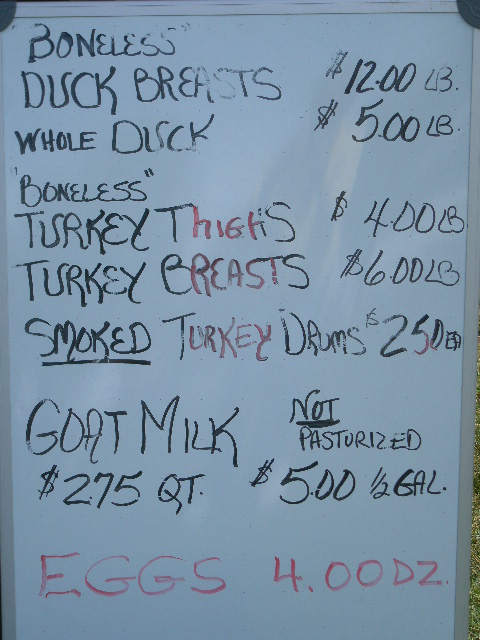 "BONELESS"
DUCK BREASTS $12.00 LB.
WHOLE DUCK $5.00 LB.
"BONELESS"
TURKEY THIGHS $4.00 LB
TURKEY BREASTS $6.00 LB
SMOKED TURKEY DRUMS $2.50 EA
GOAT MILK NOT PASTURIZED
$2.75 QT. $5.00 1/2 GAL.
EGGS 4.00 DZ.